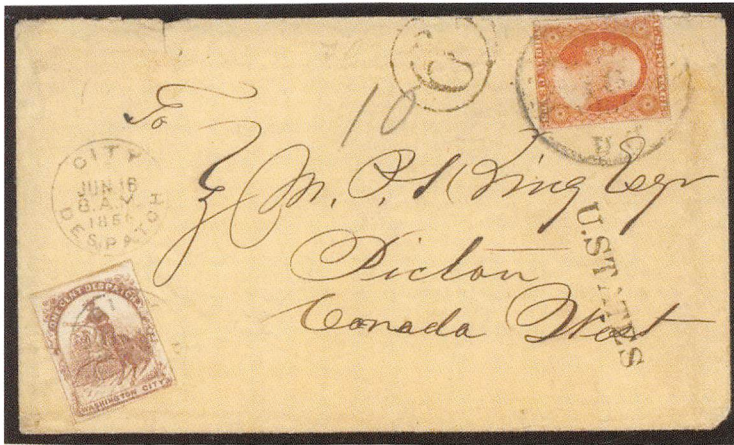 To
10
6
CITY
JUN 16
8.A.M.
185
DESPATCH
King Esqr
Picton
Canada West
U.STATES
ONE CENT DESPATCH
WASHINGTON CITY